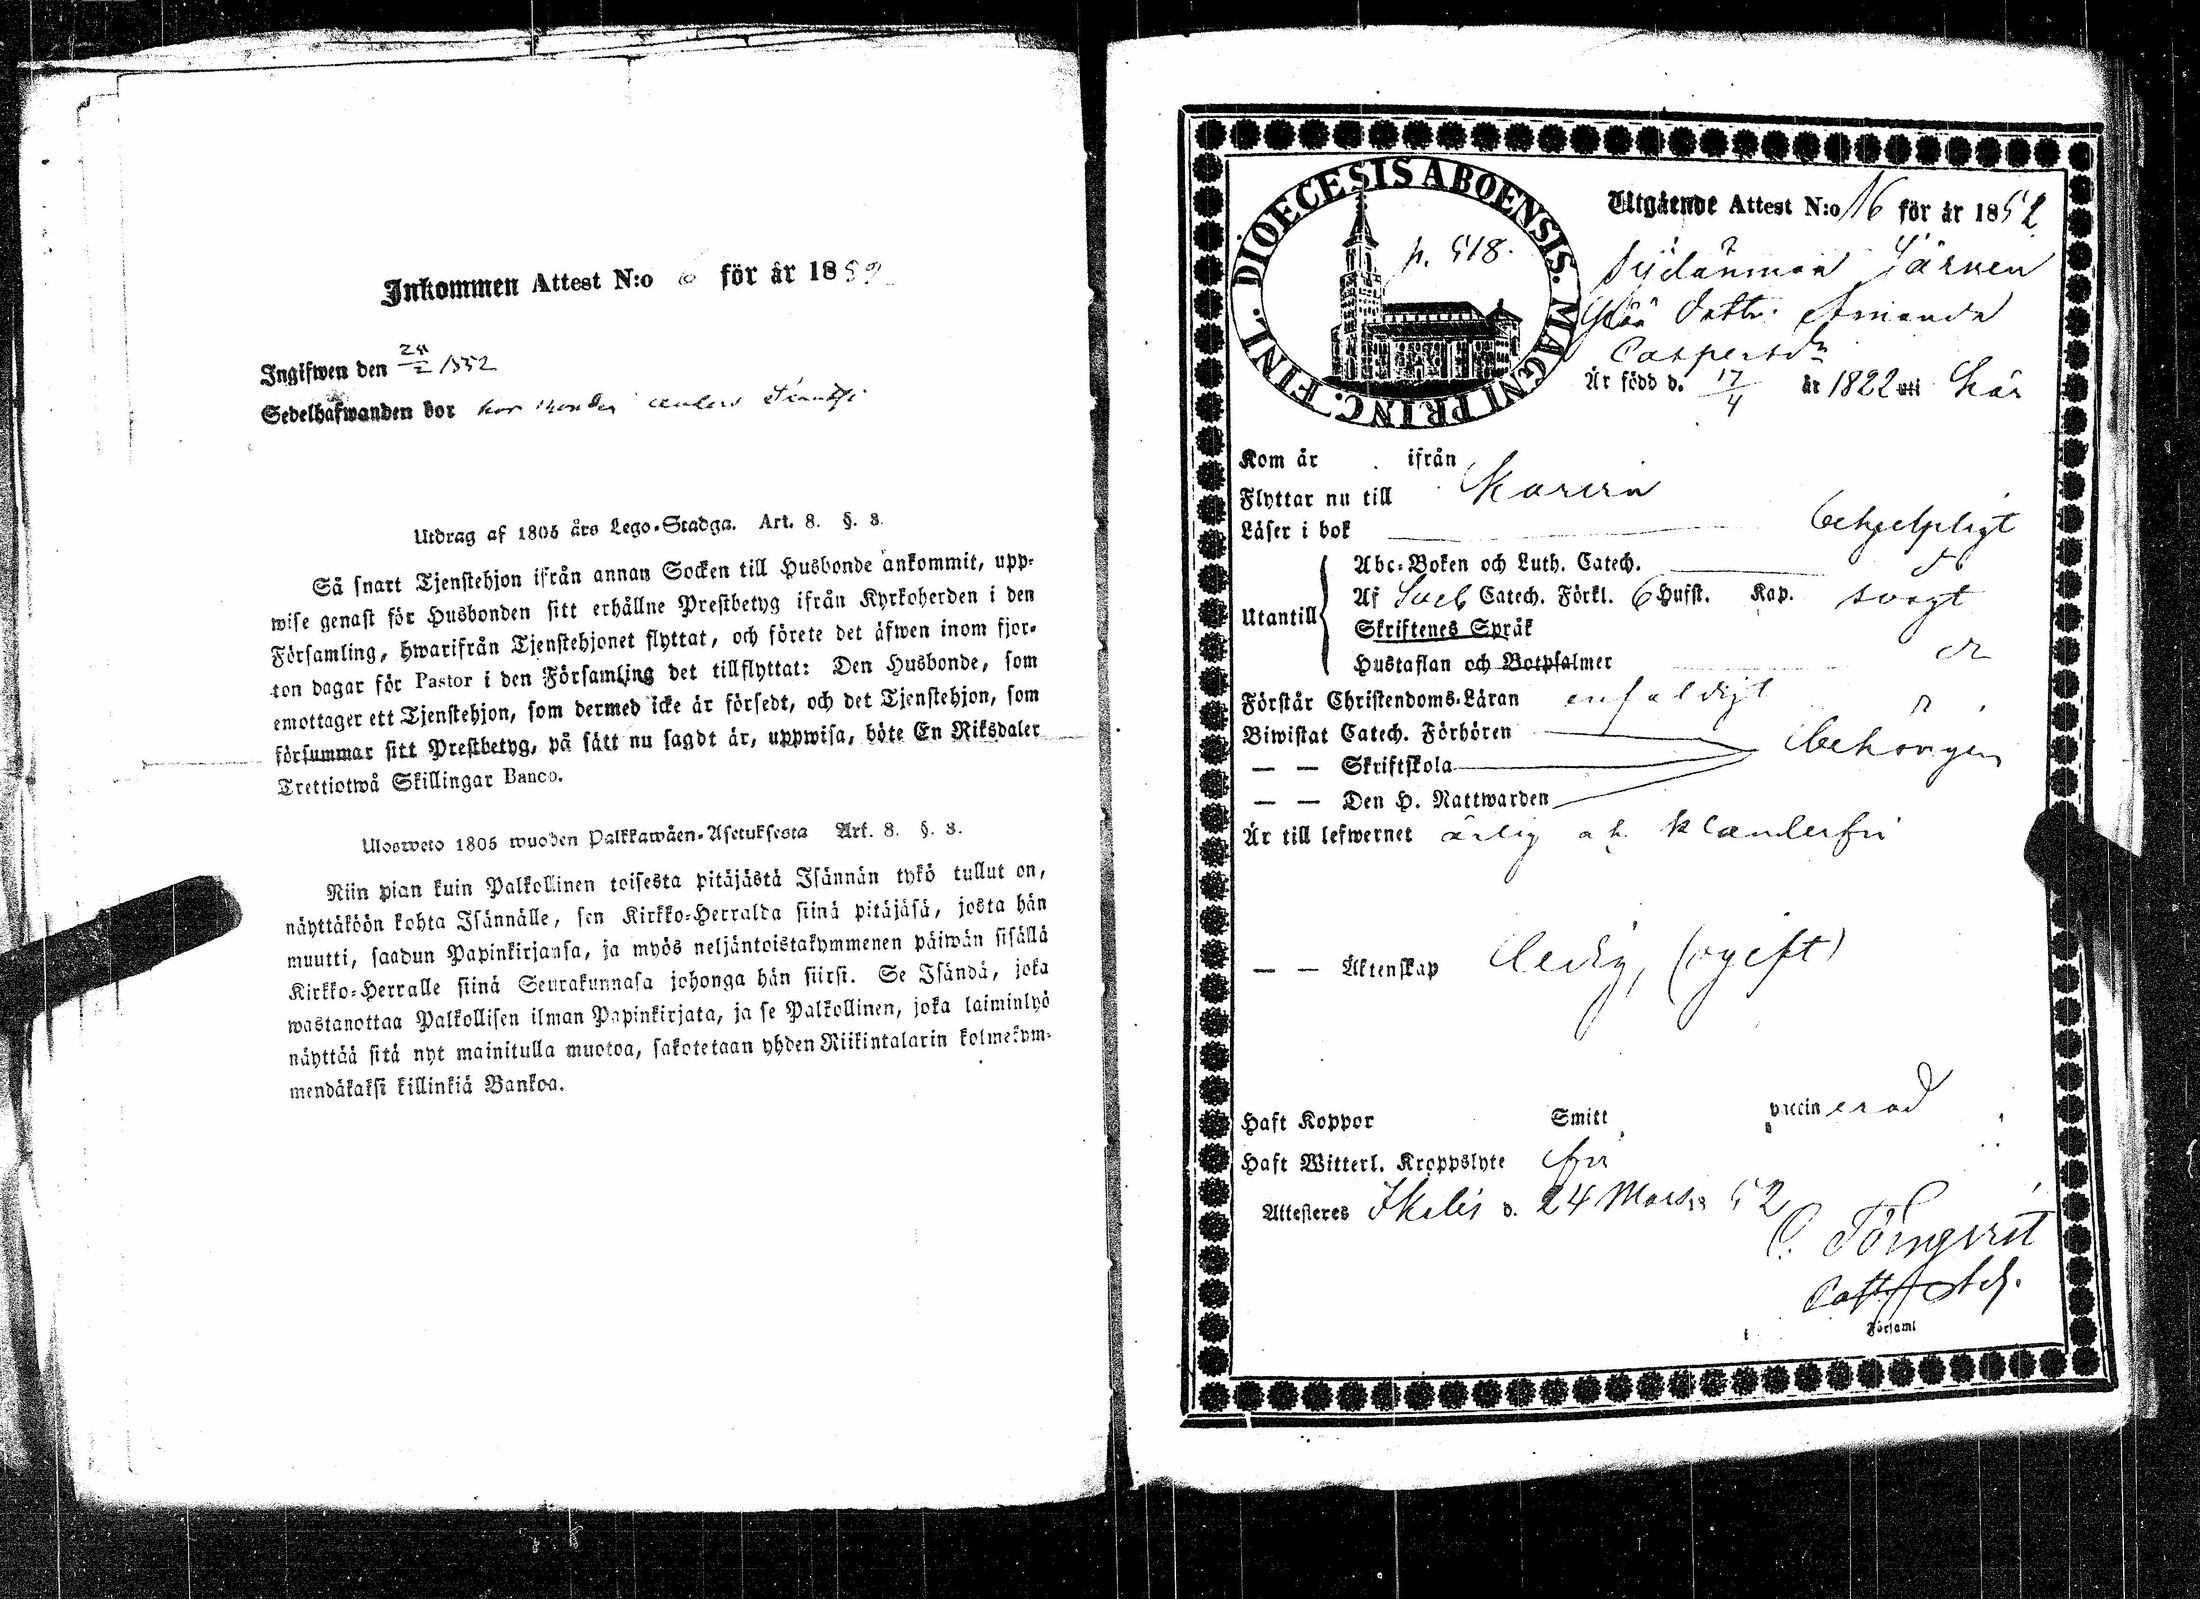 Inkommen Attest N:o 6 för år 1852
Ingifwen den 1852
Sedelhafwanden bor hos
Utdrag af 1805 års Lego-Stadga. Art. 8. §. 3.
Så snart Tjenstehjon ifrån annan Socken till Husbonde ankommit, upp-
wise genast för Husbonden sitt erhållne Prestbetyg ifrån Kyrkoherden i den
Församling, hwarifrån Tjenstehjonet flyttat, och förete det äfwen inom fjor-
ton dagar för Pastor i den Församling det tillflyttat: Den Husbonde, som
emottager ett Tjenstehjon, som dermed icke är försedt, och det Tjenstehjon, som
försummar sitt Prestbetyg, på sätt nu sagdt är, uppwisa, böte En Riksdaler
Trettiotwå Skillingar Banco.
Ulosweto 1805 wuoden Palkkawäen-Asetuksesta Art. 8. §. 3.
Niin pian kuin Palkollinen toisesta pitäjästä Isännän tykö tullut on,
näyttäköön kohta Isännälle, sen Kirkko-Herralda siinä pitäjäsä, josta hän
muutti, saadun Papinkirjansa, ja myös neljäntoistakymmenen päiwän sisällä
Kirkko-Herralle siinä Seurakunnasa johonga hän siirsi. Se Isändä, joka
wastanottaa Palkollisen ilman Papinkirjata, ja se Palkollinen, joka laiminlyö
näyttää sitä nyt mainitulla muotoa, sakotetaan yhden Riikintalarin kolmekym-
mendäkaksi killinkiä Bankoa.
DIOECESIS ABOENSIS. MAGNI PRINC. FINL.
p. 518.
Utgående Attest N:o 16 för år 1852
Amanda
Caspersdr
Är född d. 17/4 år 1822 uti här
Kom år ifrån
Flyttar nu till
Läser i bok behjelpligt
Utantill
Abc-Boken och Luth. Catech. do
Af Sveb Catech. Förkl. 6 Hufst. Kap. svagt
Skriftenes Språk
Hustaflan och Botpsalmer
Förstår Christendoms-Läran enfaldigt
Biwistat Catech. Förhören behörigen
— — Skriftskola
— — Den H. Nattwarden
Är till lefwernet ärlig och klanderfri
— — Äktenskap ledig, (ogift)
Haft Koppor Smitt vaccinerad
Haft Witterl. Kroppslyte fri
Attesteres Ikalis d. 24 Mars 52
C. Törnqvist
Församl